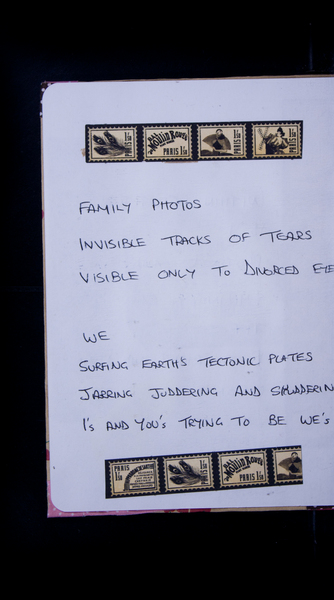 MOULIN ROUGE
PARIS
PARIS
FAMILY PHOTOS
INVISIBLE TRACKS OF TEARS
VISIBLE ONLY TO DIVORCED EYE
WE
SURFING EARTH'S TECTONIC PLATES
JARRING JUDDERING AND SHUDDERIN
I'S AND YOU'S TRYING TO BE WE'S
PARIS
MOULIN ROUGE
PARIS